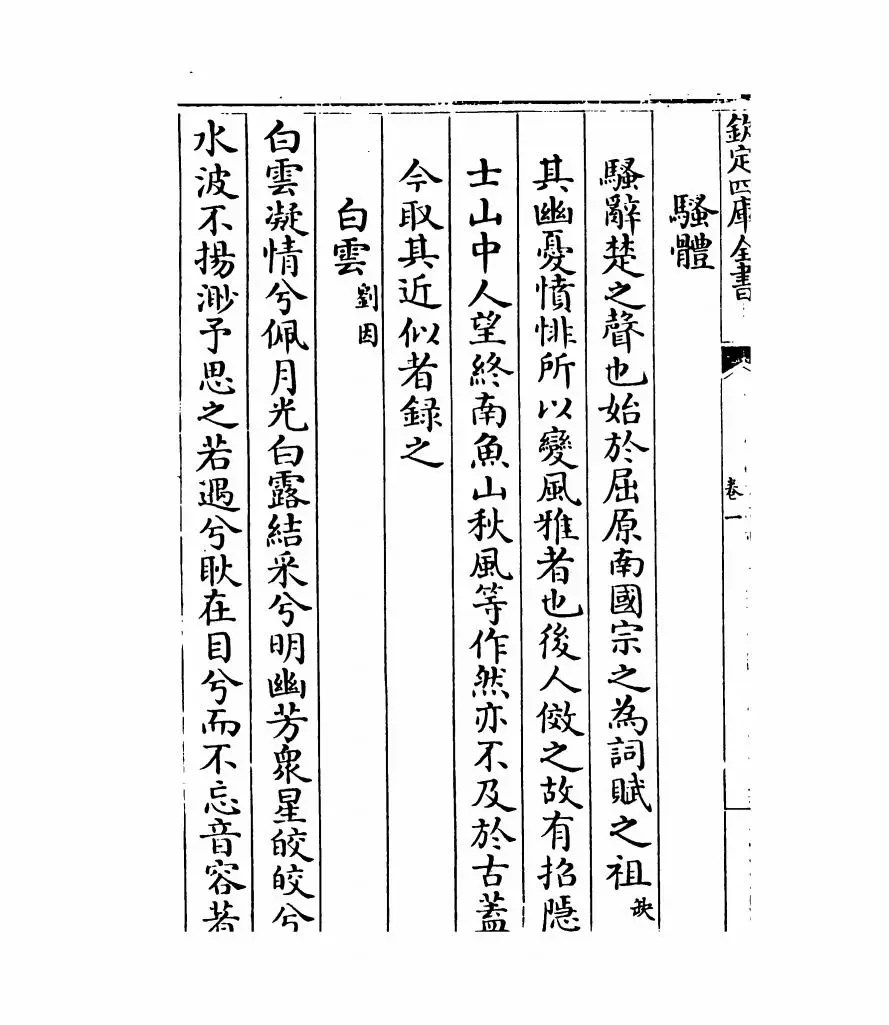 欽定四庫全書
卷一
騷體
騷辭楚之聲也始於屈原南國宗之為詞賦之祖缺
其幽憂憤悱所以變風雅者也後人傚之故有招隱
士山中人望終南魚山秋風等作然亦不及於古葢
今取其近似者録之
白雲劉因
白雲凝情兮佩月光白露結采兮明幽芳衆星皎皎兮
水波不揚渺予思之若遇兮耿在目兮而不忘音容若